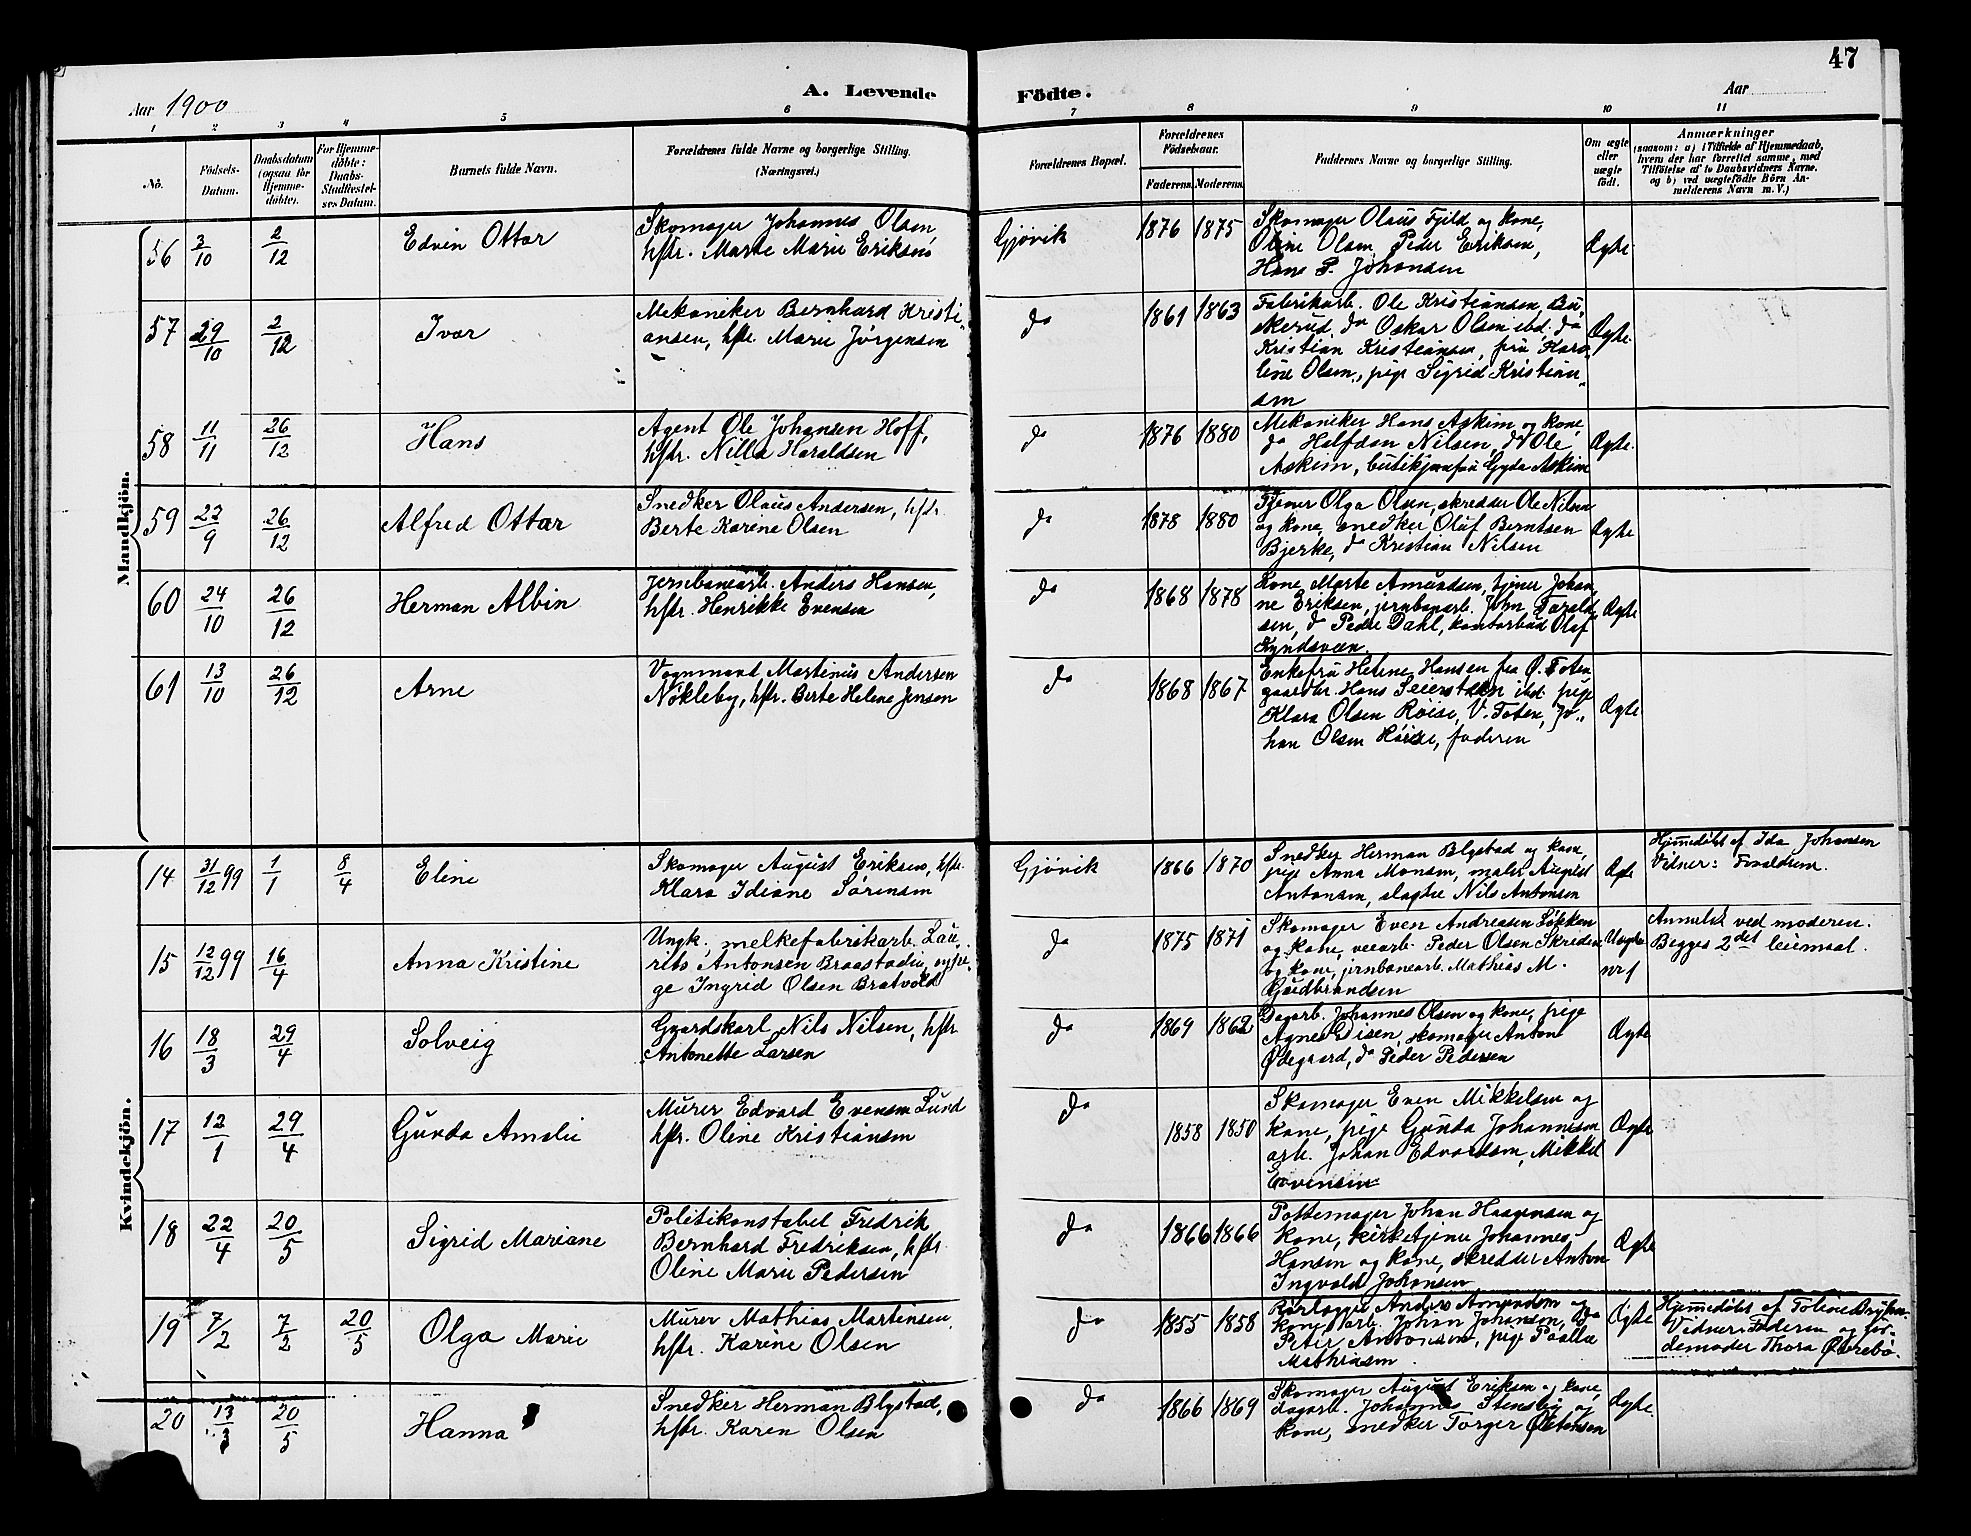 47
Aar 1900
A. Levende Födte.
Aar
1 2 3 4 5 6 7 8 9 10 11
No.
Födsels-
Datum.
Daabsdatum
(ogsaa for
Hjemme-
döbte).
For Hjemme-
döbte:
Daabs-
Stadfæstel-
ses Datum.
Barnets fulde Navn.
Forældrenes fulde Navne og borgerlige Stilling.
(Næringsvei.)
Forældrenes Bopæl.
Forældrenes
Födselsaar.
Faderens. Moderens.
Faddernes Navne og borgerlige Stilling.
Om ægte
eller
uægte
födt.
Anmærkninger
(saasom: a) i Tilfælde af Hjemmedaab,
hvem der har forrettet samme, med
Tilföielse af to Daabsvidners Navne.
og b) ved uægtefödte Börn An-
melderens Navn m. V.)
Mandkjön.
56 3/10 2/12 Edvin Ottar
Skomager Johannes Olsen,
hstr. Marte Marie Eriksen
Gjøvik 1876 1875
Skomager Olaus Fjeld og kone,
Oline Olsen, Peder Eriksen,
Hans P. Johansen
Ægte
57 29/10 2/12 Ivar
Mekaniker Bernhard Kristi-
ansen, hstr. Marie Jørgensen
do 1861 1863
Fabrikarb. Ole Kristiansen, Bu-
skerud, do Oskar Olsen ibd. do
Kristian Kristiansen, fru Karo-
line Olsen, pige Sigrid Kristian-
sen
Ægte
58 11/11 26/12 Hans
Agent Ole Johansen Hoff,
hstr. Nilla Haraldsen
do 1876 1880
Mekaniker Hans Askim og kone,
do Halfdan Nilsen, do Ole
Askim, butikjomfru Gyda Askim
Ægte
59 22/9 26/12 Alfred Ottar
Snedker Olaus Andersen, hstr.
Berte Karine Olsen
do 1878 1880
Tjener Olga Olsen, skredder Ole Nilsen
og kone, snedker Oluf Berntsen
Bjerke, do Kristian Nilsen
Ægte
60 24/10 26/12 Herman Albin
Jernbanearb. Anders Hansen,
hstr. Henrikke Evensen
do 1868 1878
Kone Marte Amundsen, tjener Johan-
ne Eriksen, jernbanearb. John Torald-
sen, do Peder Dahl, kontorbud Olaf
Ægte
61 13/10 26/12 Arne
Vognmand Martinus Andersen
Nøkleby, hstr. Berte Helene Jensen
do 1868 1867
Enkefru Helene Hansen fra Ø. Toten
gaardbr. Hans Seierstøen ibd. pige
Klara Olsen Røise, V. Toten, Jo-
han Olsen Røise, faderen
Ægte
Kvindekjön.
14 31/12 99 1/1 8/4 Eline
Skomager August Eriksen, hstr.
Klara Idiane Sørensen
Gjøvik 1866 1870
Snedker Herman Blystad og kone,
pige Anna Monsen, maler August
Antonsen, slagter Nils Antonsen
Ægte
Hjemdøbt af Ida Johansen
Vidner: Forældrene.
15 12/12 99 16/4 Anna Kristine
Ungk. melkefabrikarb. Lau-
rits Antonsen Braastadie, og pi-
ge Ingrid Olsen Bratvold
do 1875 1871
Skomager Even Andreasen Løkken
og kone, veiarb. Peder Olsen Skreden
og kone, jernbanearb. Mathias M.
Gudbrandsen
Uægte
nr 1
Anmeldt ved moderen.
Begges 2det leiemaal.
16 18/3 29/4 Solveig
Gaardskarl Nils Nilsen, hstr.
Antonette Larsen
do 1869 1862
Dagarb. Johannes Olsen og kone, pige
Agnes Disen, skomager Anton
Ødegaard, do Peder Pedersen
Ægte
17 12/1 29/4 Gunda Amalie
Murer Edvard Evensen Lund
hstr. Oline Kristiansen
do 1858 1850
Skomager Even Mikkelsen og
kone, pige Gunda Johannesen
arb. Johan Edvardsen, Mikkel
Evensen
Ægte
18 22/4 20/5 Sigrid Mariane
Politikonstabel Fredrik
Bernhard Fredriksen, hstr.
Oline Marie Pedersen
do 1866 1866
Pottemager Johan Haagensen og
kone, kirketjener Johannes
Hansen og kone, skredder Anton
Ingvald Johansen
Ægte
19 7/2 7/2 20/5 Olga Marie
Murer Mathias Martinsen,
hstr. Karine Olsen
do 1855 1858
Anders Amundsen og
kone, arb. Johan Johansen, do
Peter Antonsen, pige Paalla
Mathiasen.
Ægte
Hjemdøbt af Toline
Vidner: Faderen og jor-
demoder Thora Østrebø.
20 13/3 20/5 Hanna
Snedker Herman Blystad,
hstr. Karen Olsen
do 1866 1869
Skomager August Eriksen og kone,
dagarb. Johannes Stensby og
kone, snedker Torger Østensen
Ægte.